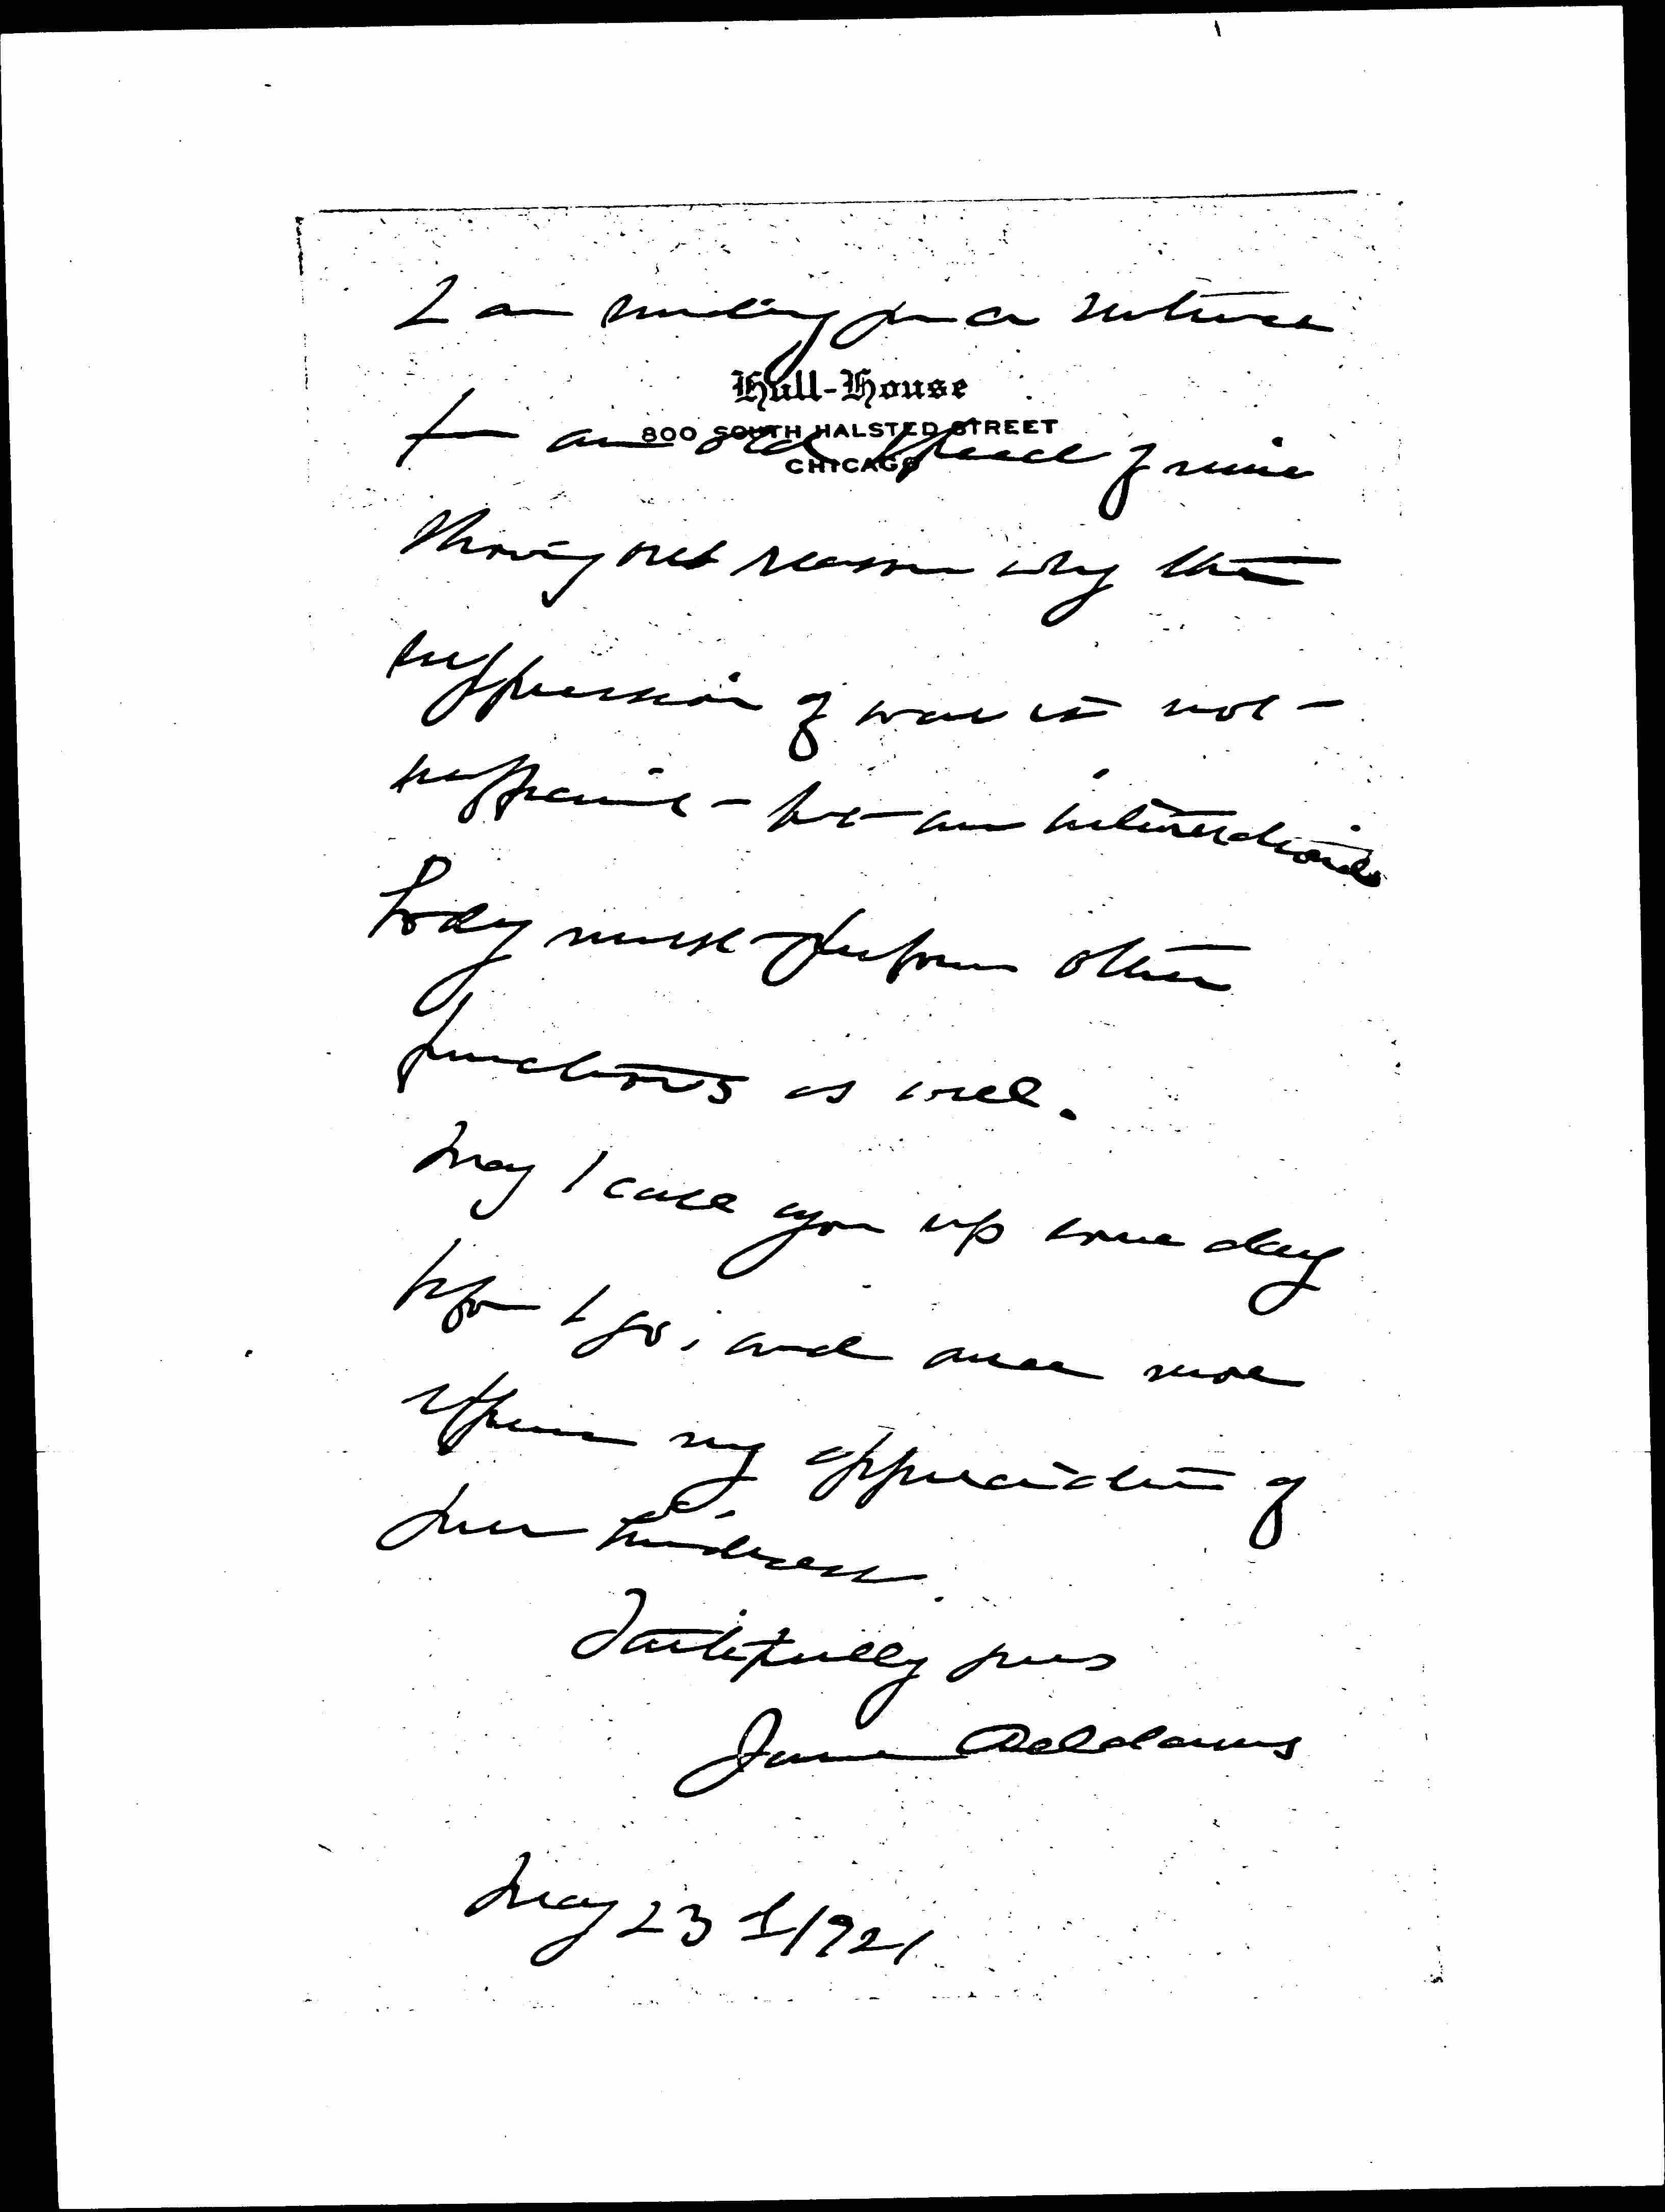 I am sending you a
Hull-House
800 SOUTH HALSTED STREET
CHICAGO
to an old speech of mine
giving out reason why the
suppression of war is not
sufficient - but an international
body must perform other
functions as well.
May I call upon you some day
before I go, and once more
express my appreciation of
your kindness.
Faithfully yours
Jane Addams
May 23 1921